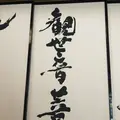 觀世音菩